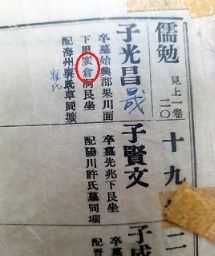 儒勉 見上一卷二〇
十九
二
子光昌 晟
卒墓始興郡果川面
下里 倉洞艮坐
配海州吳氏墓同壙
子賢文
卒墓先兆下艮坐
配陽川許氏墓同壙
子成
卒墓
配晋